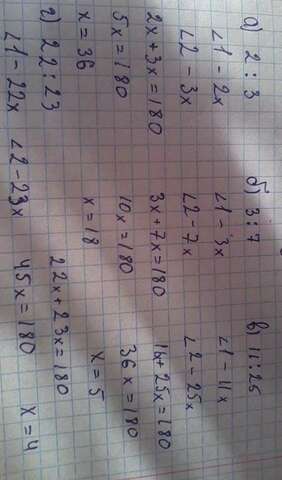 а) 2 : 3 б) 3 : 7 в) 11 : 25
∠1 - 2x ∠1 - 3x ∠1 - 11x
∠2 - 3x ∠2 - 7x ∠2 - 25x
2x + 3x = 180 3x + 7x = 180 11x + 25x = 180
5x = 180 10x = 180 36x = 180
x = 36 x = 18 x = 5
г) 22 : 23 22x + 23x = 180
∠1 - 22x ∠2 - 23x 45x = 180 x = 4